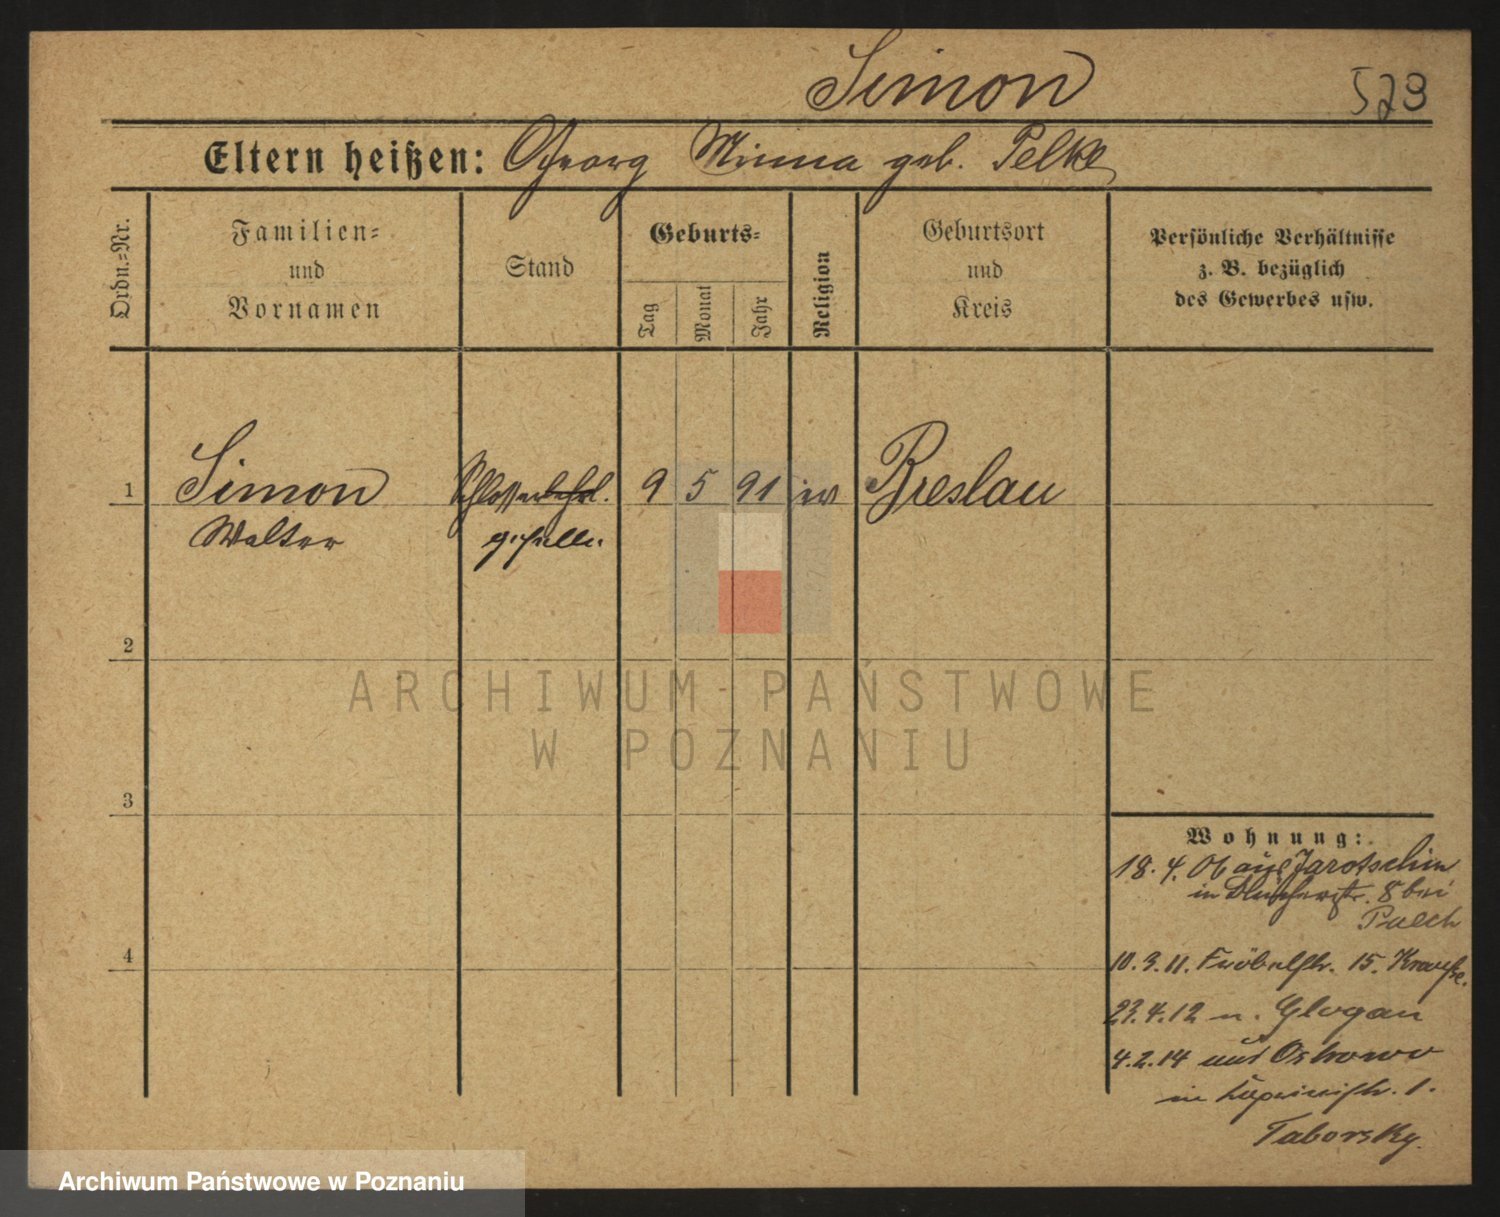 Simon 523
Eltern heißen: Georg Minna geb. Pelke
Ordn.=Nr.
Familien=
und
Vornamen
Stand
Geburts=
Tag
Monat
Jahr
Religion
Geburtsort
und
Kreis
Persönliche Verhältnisse
z. B. bezüglich
des Gewerbes usw.
1 Simon Schlosserlehrl. 9 5 91 ev Breslau
Walter geselle
2
3
4
Wohnung:
18. 4. 06 aus Jarotschin
in Blücherstr. 8 bei
10. 3. 11. Fröbelstr. 15. Krause.
23. 4. 12 n. Glogau
4. 2. 14 aus Ostrowo
in 1.
Taborsky.
ARCHIWUM PAŃSTWOWE
W POZNANIU
Archiwum Państwowe w Poznaniu